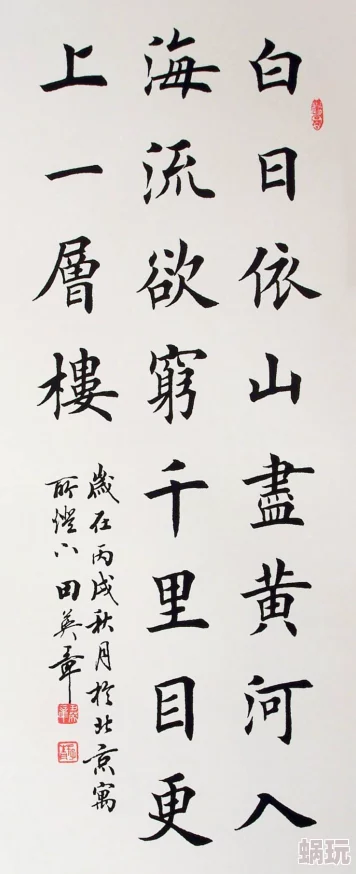 白日依山盡黄河入
海流欲窮千里目更
上一層樓
歲在丙戌秋月於北京寓
所燈下田英章
蝸玩